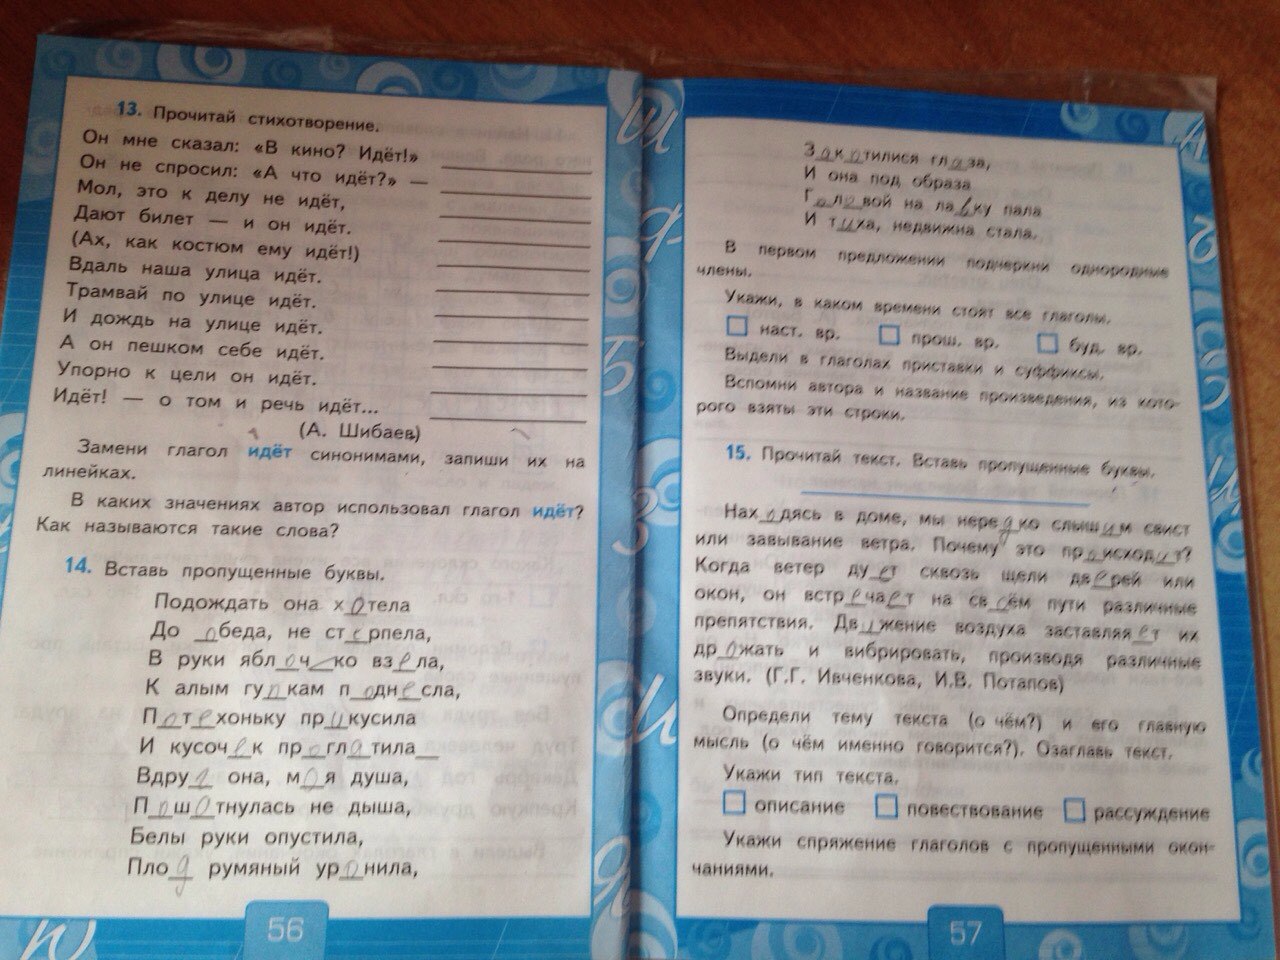 13. Прочитай стихотворение.
Он мне сказал: «В кино? Идёт!»
Он не спросил: «А что идёт?» —
Мол, это к делу не идёт,
Дают билет — и он идёт.
(Ах, как костюм ему идёт!)
Вдаль наша улица идёт.
Трамвай по улице идёт.
И дождь на улице идёт.
А он пешком себе идёт.
Упорно к цели он идёт.
Идёт! — о том и речь идёт...
(А. Шибаев)
Замени глагол идёт синонимами, запиши их на
линейках.
В каких значениях автор использовал глагол идёт?
Как называются такие слова?
14. Вставь пропущенные буквы.
Подождать она хотела
До обеда, не стерпела,
В руки яблочко взела,
К алым гупкам поднесла,
Потехоньку прикусила
И кусочек проглатила_
Вдруг она, моя душа,
Пошотнулась не дыша,
Белы руки опустила,
Плод румяный уронила,
56
Закотилися глаза,
И она под образа
Головой на лавку пала
И тиха, недвижна стала.
В первом предложении подчеркни однородные
члены.
Укажи, в каком времени стоят все глаголы.
наст. вр. прош. вр. буд. вр.
Выдели в глаголах приставки и суффиксы.
Вспомни автора и название произведения, из кото-
рого взяты эти строки.
15. Прочитай текст. Вставь пропущенные буквы.
Находясь в доме, мы нередко слышим свист
или завывание ветра. Почему это происходит?
Когда ветер дует сквозь щели дверей или
окон, он встречает на своём пути различные
препятствия. Движение воздуха заставляяет их
дрожать и вибрировать, производя различные
звуки. (Г.Г. Ивченкова, И.В. Потапов)
Определи тему текста (о чём?) и его главную
мысль (о чём именно говорится?). Озаглавь текст.
Укажи тип текста.
описание повествование рассуждение
Укажи спряжение глаголов с пропущенными окон-
чаниями.
57